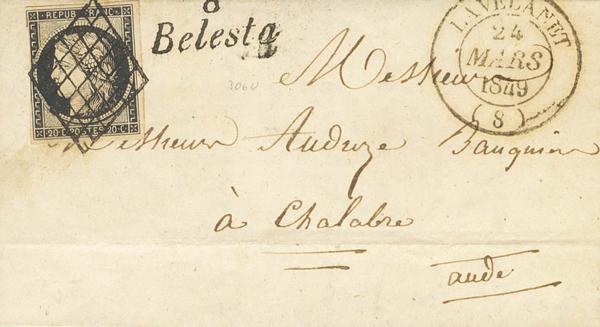 REPUB FRANC
20 C POSTES 20 C
8
Belesta
LAVELANET
24
MARS
1849
(8)
3060
Messieurs
Messieurs Auduze Banquiers
à Chalabre
aude